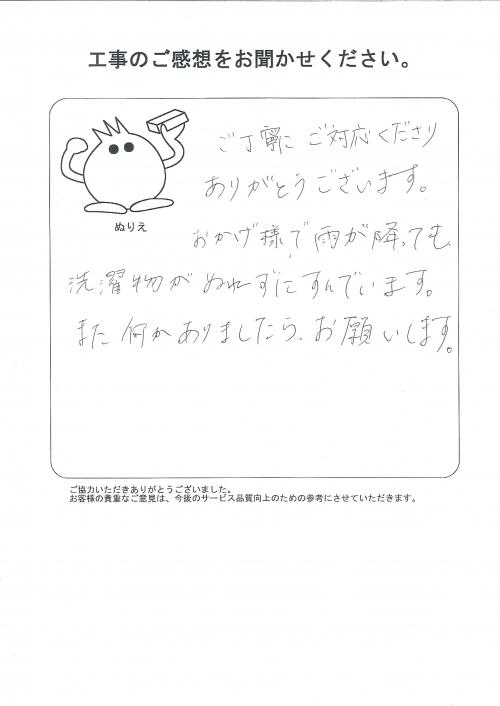 工事のご感想をお聞かせください。
ご丁寧に ご対応くださり
ありがとうございます。
ぬりえ
おかげ様で 雨が降っても、
洗濯物が ぬれずにすんでいます。
また 何かありましたら、お願いします。
ご協力いただきありがとうございました。
お客様の貴重なご意見は、今後のサービス品質向上のための参考にさせていただきます。